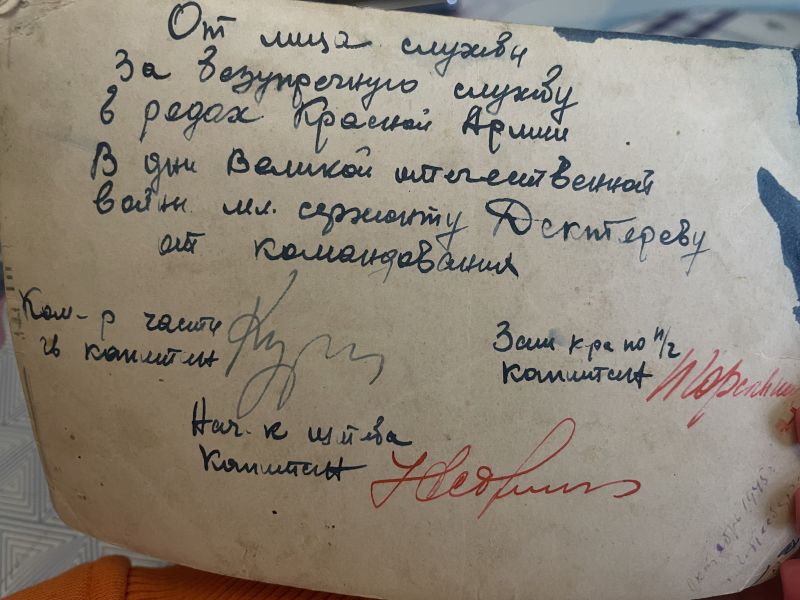 От лица службы
За безупречную службу
в редах Красной Армии
В дни Великой отечественной
войны мл. сержанту Дектереву
от командования
Ком-р части
гв капитан
Зам к-ра по п/ч
капитан
Нач-к штаба
Капитан
октябрь 1945 г